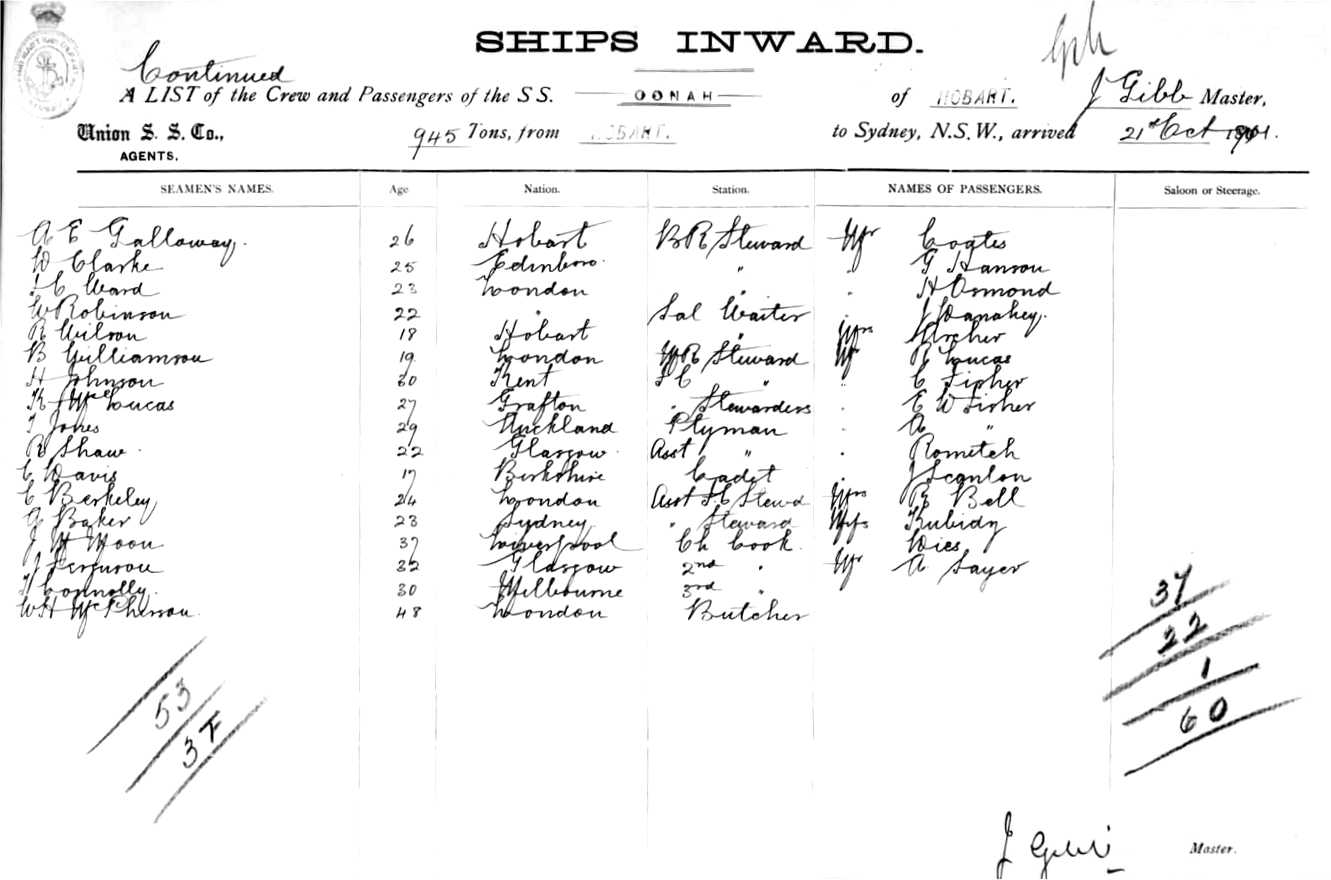 SHIPS INWARD.
Continued
A LIST of the Crew and Passengers of the S S. OONAH of HOBART. J Gibb Master,
Union S. S. Co., 945 Tons, from HOBART. to Sydney, N.S.W., arrived 21st Oct 1901.
AGENTS.
SEAMEN'S NAMES. Age Nation. Station. NAMES OF PASSENGERS. Saloon or Steerage.
A E Galloway. 26 Hobart B R Steward Mr Coates
W Clarke 25 Edinboro. " . G Hanson
C Ward 23 London " . H Osmond
W Robinson 22 " Sal Waiter . J Danahey.
R Wilson 18 Hobart " Mrs Archer
B Williamson 19 London M R Steward Mr R Lucas
H Johnson 30 Kent F C " " C Fisher
K J McLucas 27 Grafton . Stewardess . E W Fisher
T Jones 29 Auckland Ptyman . A "
R Shaw. 22 Glasgow. Asst " . Rometch
C Davis 17 Berkshire Cadet . J Scanlon
C Berkeley 24 London Asst F C Stewd Mrs R Bell
G Baker 23 Sydney " Steward Kubidy
J W Moon 37 Liverpool Ch Cook. Wies
J Ferguson 32 Glasgow 2nd " Mr A Sayer
Connolly. 30 Melbourne 3rd "
W H McPherson. 48 London Butcher
37
22
1
60
53
37
J Gibb Master.